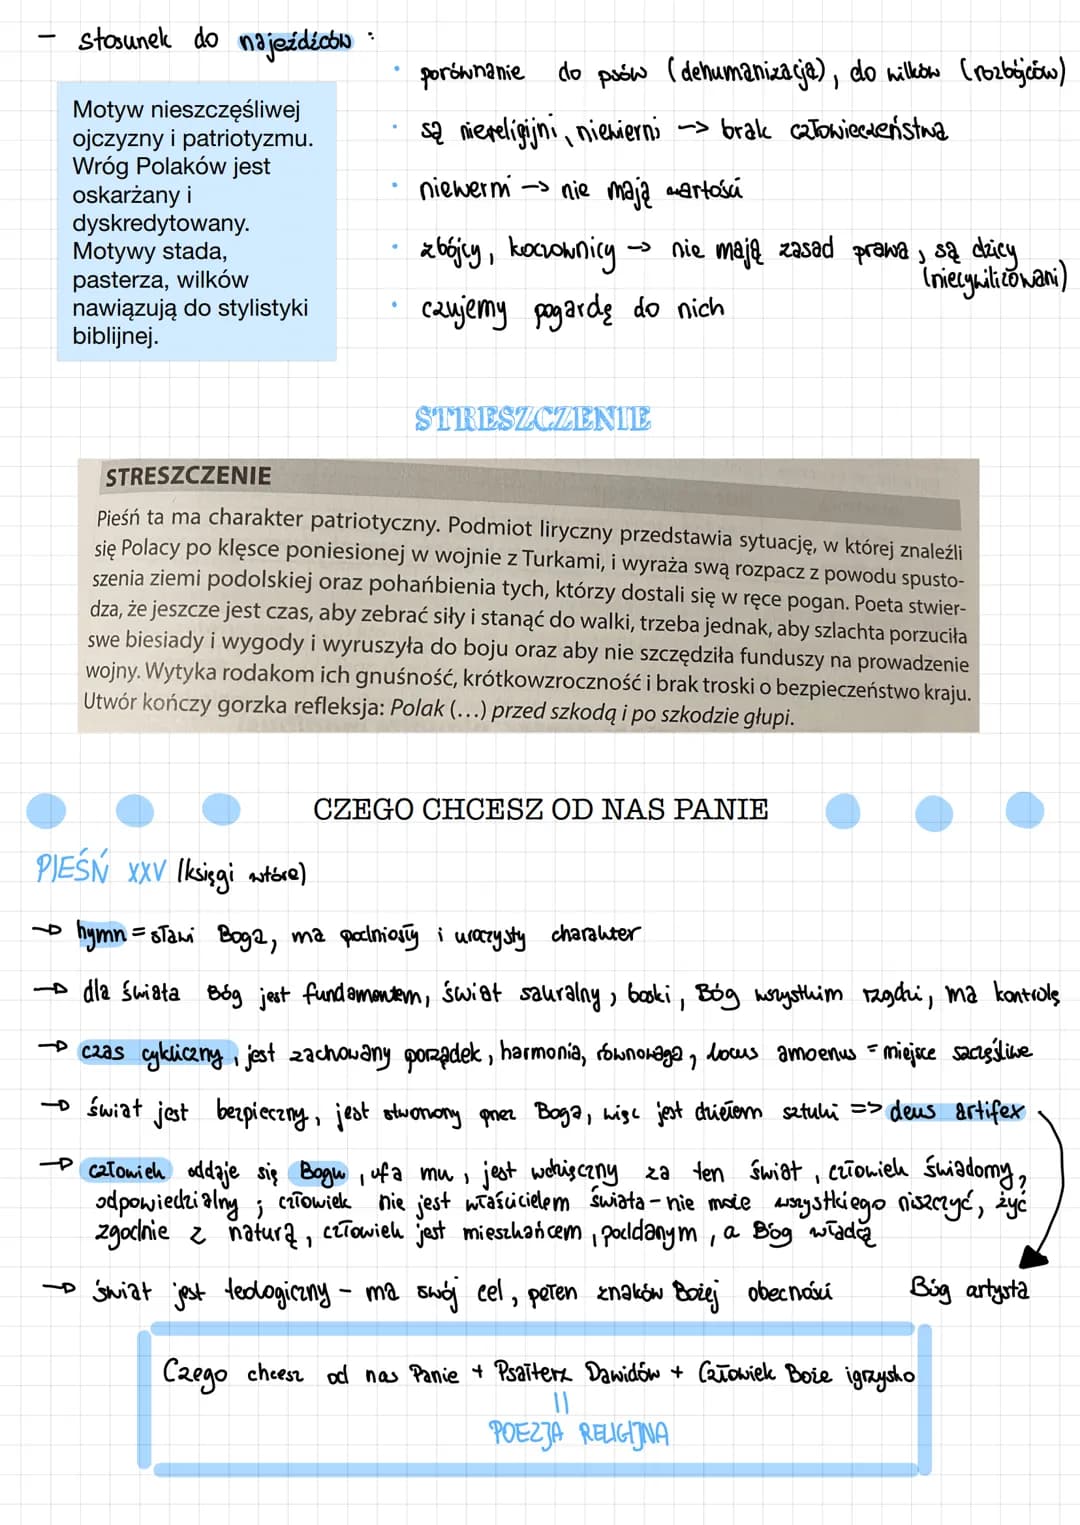 - stosunek do najeźdźców :
• porównanie do psów (dehumanizacja), do wilków (rozbójców)
• są niereligijni, niewierni -> brak człowieczeństwa
• niewerni -> nie mają wartości
• zbójcy, koczownicy -> nie mają zasad prawa, są dzicy
(niecywilizowani)
• czujemy pogardę do nich
Motyw nieszczęśliwej
ojczyzny i patriotyzmu.
Wróg Polaków jest
oskarżany i
dyskredytowany.
Motywy stada,
pasterza, wilków
nawiązują do stylistyki
biblijnej.
STRESZCZENIE
STRESZCZENIE
Pieśń ta ma charakter patriotyczny. Podmiot liryczny przedstawia sytuację, w której znaleźli
się Polacy po klęsce poniesionej w wojnie z Turkami, i wyraża swą rozpacz z powodu spusto-
szenia ziemi podolskiej oraz pohańbienia tych, którzy dostali się w ręce pogan. Poeta stwier-
dza, że jeszcze jest czas, aby zebrać siły i stanąć do walki, trzeba jednak, aby szlachta porzuciła
swe biesiady i wygody i wyruszyła do boju oraz aby nie szczędziła funduszy na prowadzenie
wojny. Wytyka rodakom ich gnuśność, krótkowzroczność i brak troski o bezpieczeństwo kraju.
Utwór kończy gorzka refleksja: Polak (...) przed szkodą i po szkodzie głupi.
CZEGO CHCESZ OD NAS PANIE
PIEŚŃ XXV (księgi wtóre)
-> hymn = sławi Boga, ma podniosły i uroczysty charakter
-> dla świata Bóg jest fundamentem, świat sauralny, boski, Bóg wszystkim rządzi, ma kontrolę
-> czas cykliczny, jest zachowany porządek, harmonia, równowaga, locus amoenus = miejsce szczęśliwe
-> świat jest bezpieczny, jest stworzony przez Boga, więc jest dziełem sztuki => deus artifex
-> człowiek oddaje się Bogu, ufa mu, jest wdzięczny za ten świat, człowiek świadomy,
odpowiedzialny ; człowiek nie jest właścicielem świata - nie może wszystkiego niszczyć, żyć
zgodnie z naturą, człowiek jest mieszkańcem, poddanym, a Bóg władcą
-> świat jest teologiczny - ma swój cel, pełen znaków Bożej obecności
Bóg artysta
Czego chcesz od nas Panie + Psałterz Dawidów + Człowiek Boże igrzysko
||
POEZJA RELIGIJNA